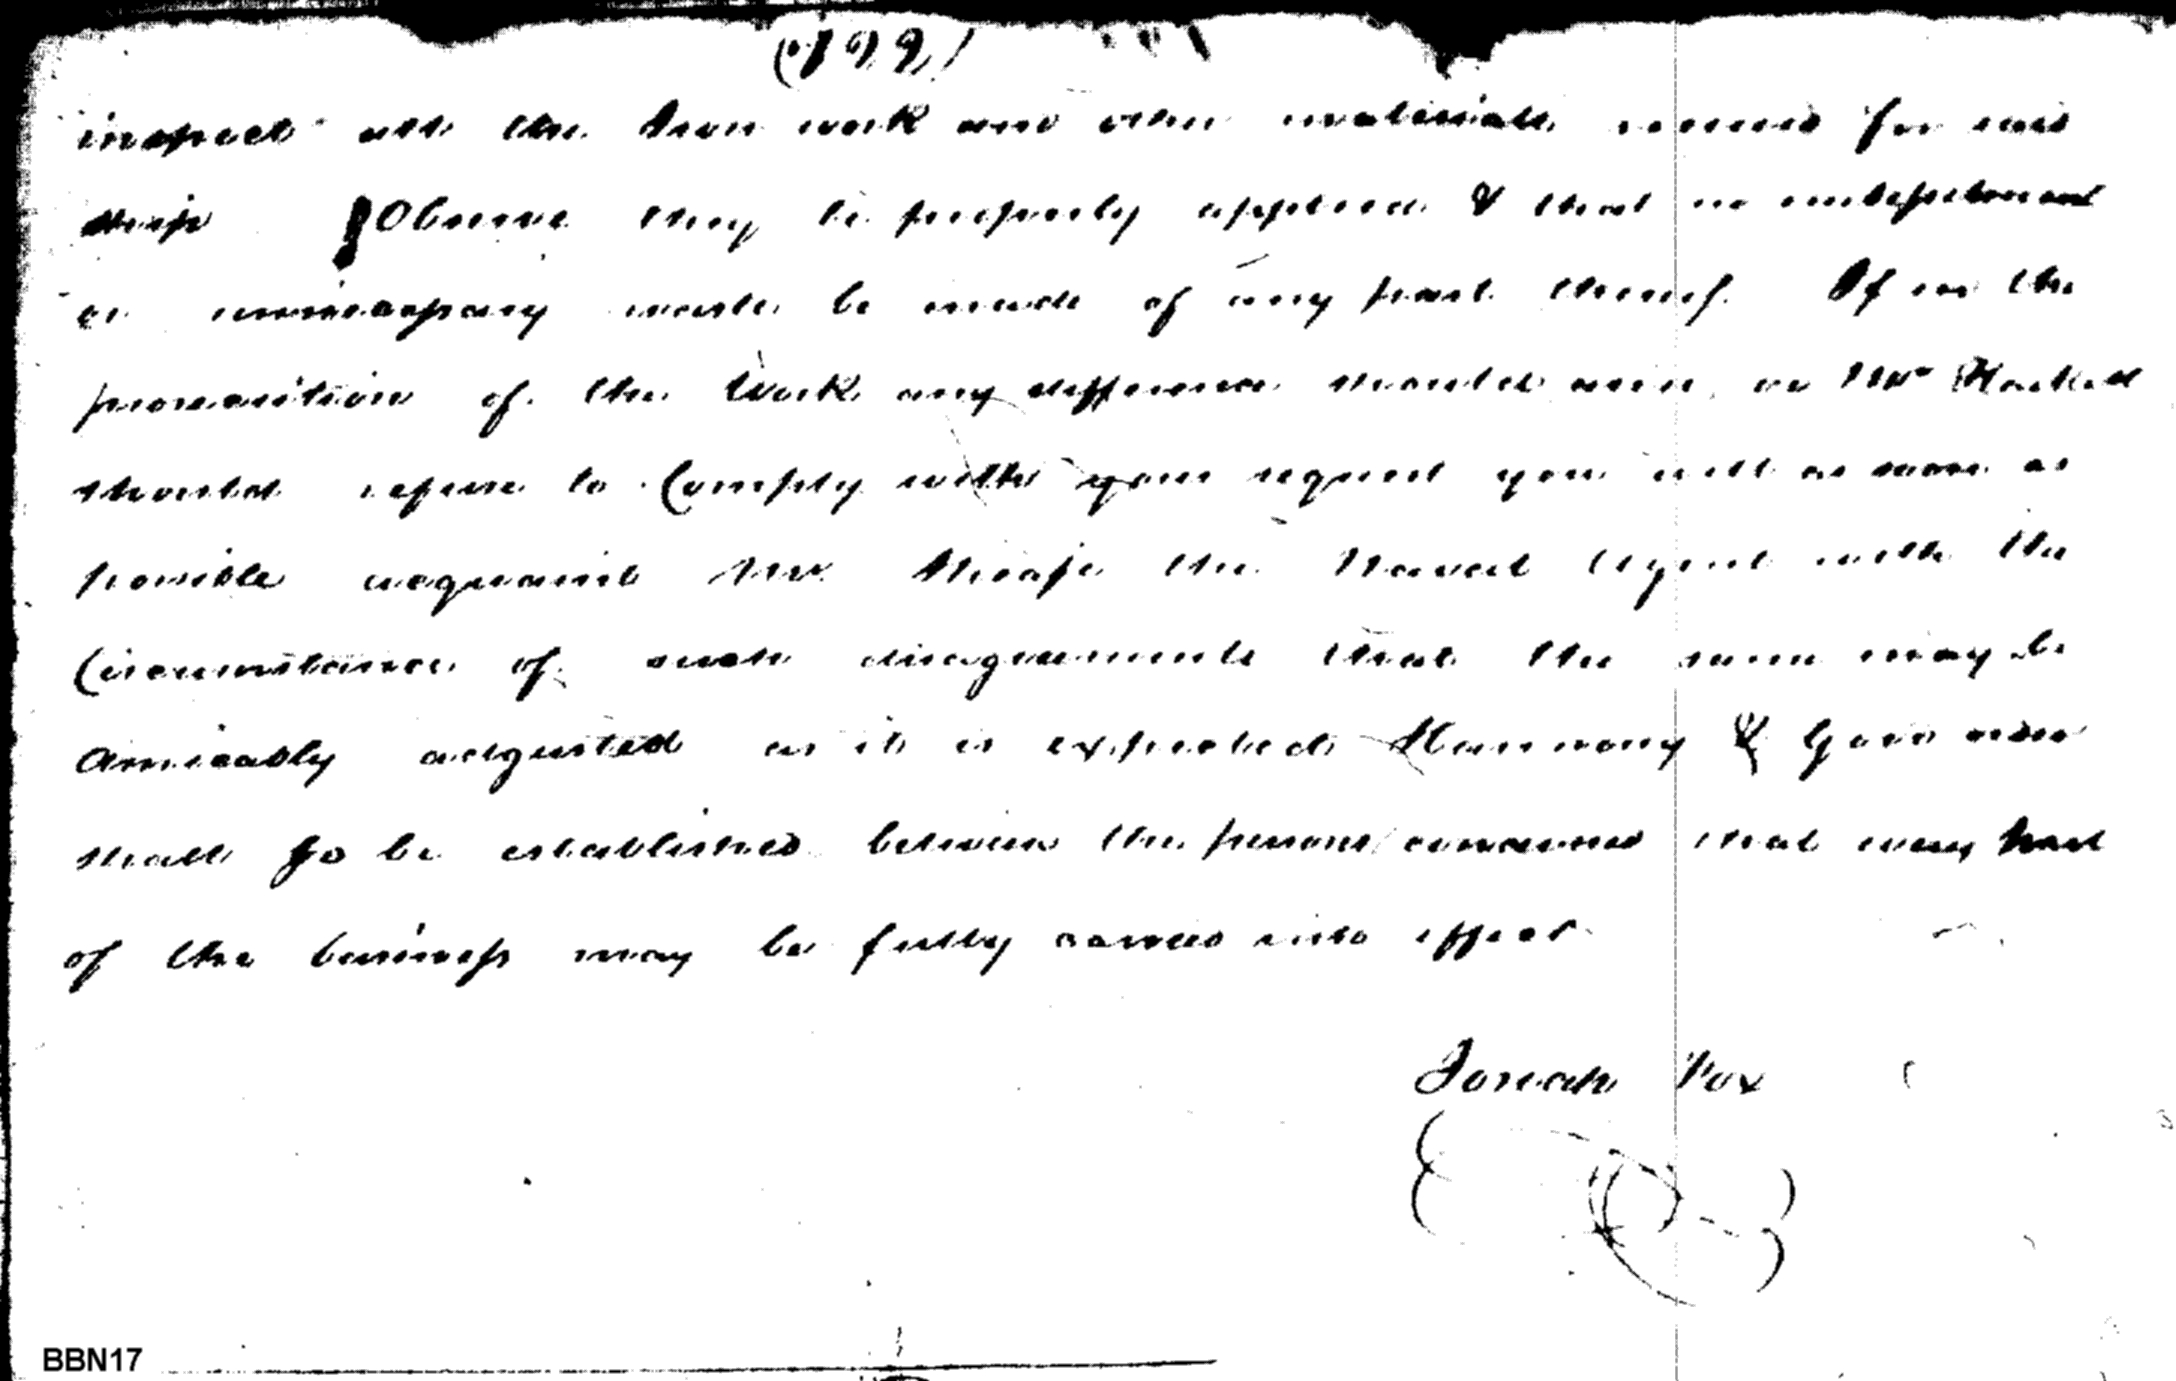 inspect all the Iron work and other materials received for said
ship Observe they be properly applied & that no embezzlement
or unnecessary waste be made of any part thereof. If in the
prosecution of the Work any difference should arise, or Mr Hackett
should refuse to Comply with your request you will as soon as
possible acquaint Mr Sheafe the Naval Agent with the
Circumstance of such disagreements that the same may be
Amicably adjusted as it is expected Harmony & Good order
shall so be established between the persons concerned that every part
of the business may be fully carried into effect
Josiah Fox
BBN17